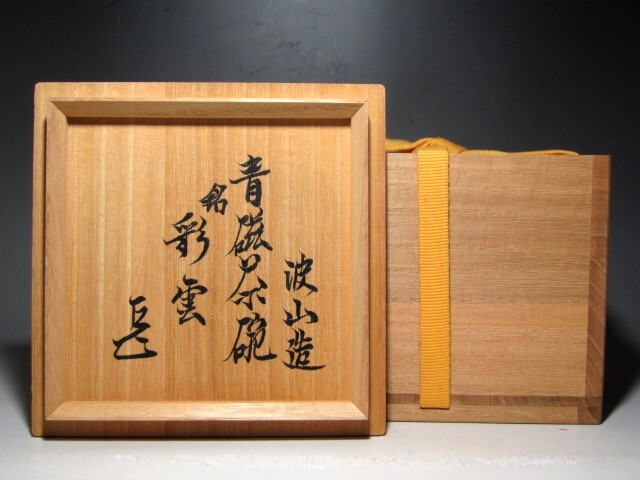 波山造
青磁茶碗
銘
彩雲